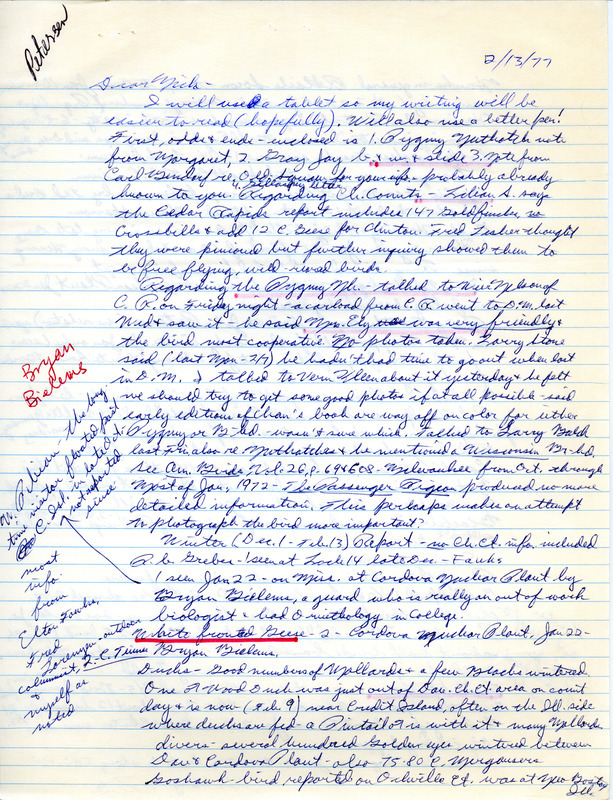 Petersen
2/13/77
Dear Nick-
I will use a tablet so my writing will be
easier to read (hopefully). Will also use a better pen!
First, odds & ends - enclosed is 1. Pygmy Nuthatch note
from Margaret, 2. Gray Jay b. & w. & slide 3. Note from
Carl Bendorf re. Oldsquaw for your info - probably already
4. Bellarmy letter
known to you. Regarding Ch. Counts - Lilian S. says
the Cedar Rapids report includes 147 Goldfinches no
Crossbills & add 12 C. Geese for Clinton. Fred Lesher thought
they were pinioned but further inquiry showed them to
be free flying, wild-reared birds.
Regarding the Pygmy Nh. - talked to Weir Nelson of
C.R. on Friday night - a carload from C.R. went to D.M. last
Wed & saw it - he said Mrs. Ely was very friendly &
the bird most cooperative. No photos taken. Larry Stone
said (last Mon - 2/7) he hadn't had time to go out when last
in D.M. I talked to Vern Kleen about it yesterday & he felt
we should try to get some good photos if at all possible - said
early editions of Chan's book are way off on color for either
Pygmy or B-hd. - wasn't sure which. Talked to Larry Balch
last Fri. also re Nuthatches & he mentioned a Wisconsin Br-hd.
See Am. Birds Vol. 26, p. 69 & 608 - Milwaukee from Oct. through
most of Jan, 1972 - The Passenger Pigeon produced no more
detailed information. This perhaps makes an attempt
to photograph the bird more important?
Winter (Dec. 1 - Feb. 13) Report - no Ch. Ct. info included
R. n. Grebe - 1 seen at Lock 14 late Dec. - Fawks
1 seen Jan 22 - on Miss. at Cordova Nuclear Plant by
Bryan Bielems, a guard who is really an out of work
biologist & had Ornithology in College.
White fronted Geese - 2 - Cordova Nuclear Plant, Jan 22 -
Bryan Bielems.
Ducks - Good numbers of Mallards & a few Blacks wintered.
One ♂ Wood Duck was just out of Dav. Ch. Ct. area on count
day & is now (Feb. 9) near Credit Island, often on the Ill. side
where ducks are fed - a Pintail ♂ is with it & many Mallards
divers - several hundred Golden eyes wintered between
Dav & Cordova Plant - also 75-80 C. Mergansers
Goshawk - bird reported on Oakville Ct. was at New Boston,
Ill.
Bryan
Bielems
W. Pelican, the long
time visitor floated past
C. Isl. in late Oct
- not reported
since
most
info
from
Elton Fawks,
Fred
Lorenzen - outdoor
columnist, Q-C. Times
&
myself as
noted